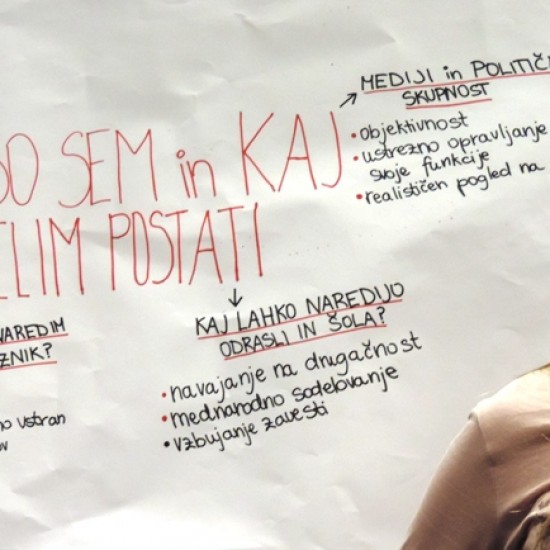 DO SEM in KAJ
ELIM POSTATI
MEDIJI in POLITIČN
SKUPNOST
• objektivnost
• ustrezno opravljanje
svoje funkcije
• realističen pogled na
KAJ LAHKO NAREDIJO
ODRASLI IN ŠOLA?
• navajanje na drugačnost
• mednarodno sodelovanje
• vzbujanje zavesti
NAREDIM
ZNIK?
no vstran
ov